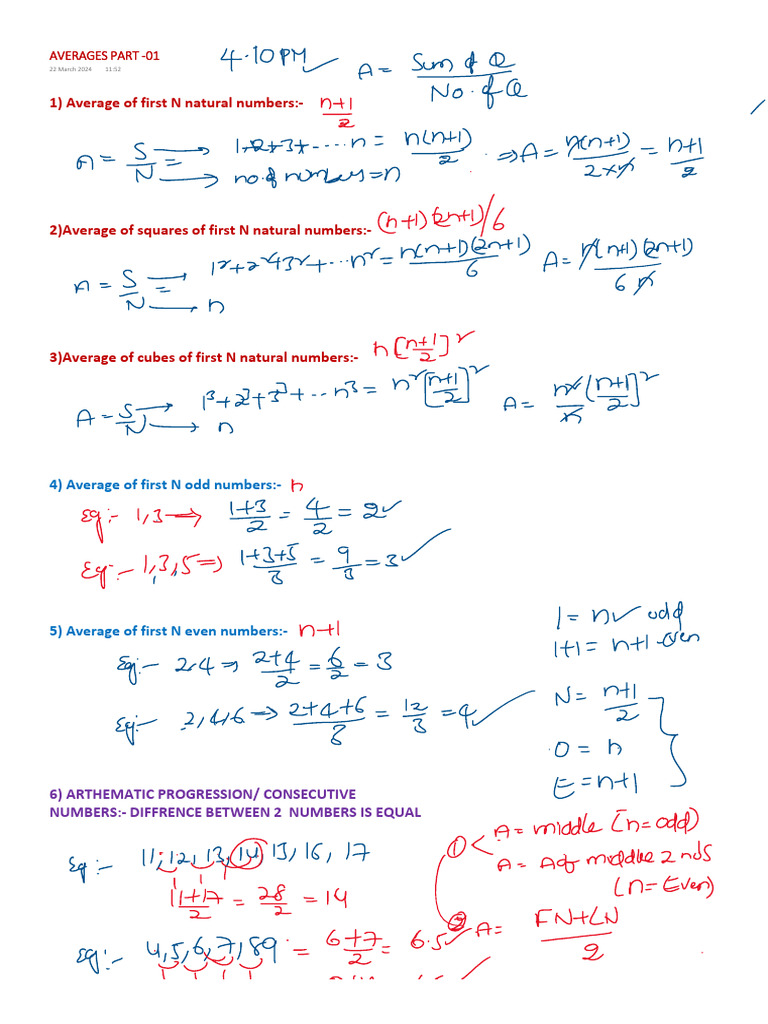 AVERAGES PART -01
22 March 2024 11:52
4.10PM ✓
A = Sum of Q / No. of Q
1) Average of first N natural numbers:- n+1/2
A = S/N = → 1+2+3+.....n = n(n+1)/2 ⇒ A = n(n+1)/2×n = n+1/2
→ no.of numbers = n
2)Average of squares of first N natural numbers:- (n+1)(2n+1)/6
A = S/N = → 1²+2²+3²+...n² = n(n+1)(2n+1)/6 A = n(n+1)(2n+1)/6n
→ n
3)Average of cubes of first N natural numbers:- n[n+1/2]²
A = S/N → 1³+2³+3³+...n³ = n²[n+1/2]² A = n²/n [n+1/2]²
→ n
4) Average of first N odd numbers:- n
Eg:- 1,3 → 1+3/2 = 4/2 = 2 ✓
Eg:- 1,3,5 ⇒ 1+3+5/3 = 9/3 = 3 ✓
5) Average of first N even numbers:- n+1
1 = n ✓ odd
1+1 = n+1 - Even
Eg:- 2,4 ⇒ 2+4/2 = 6/2 = 3
Eg:- 2,4,6 → 2+4+6/3 = 12/3 = 4 ✓
N = n+1/2
O = n
E = n+1
6) ARTHEMATIC PROGRESSION/ CONSECUTIVE
NUMBERS:- DIFFRENCE BETWEEN 2 NUMBERS IS EQUAL
Eg:- 11,12,13,14,13,16,17
11+17/2 = 28/2 = 14
① A = middle (n=odd)
A = A of middle 2 nos
(n=Even)
② A = FN+LN/2
Eg:- 4,5,6,7,8,9 = 6+7/2 = 6.5 ✓